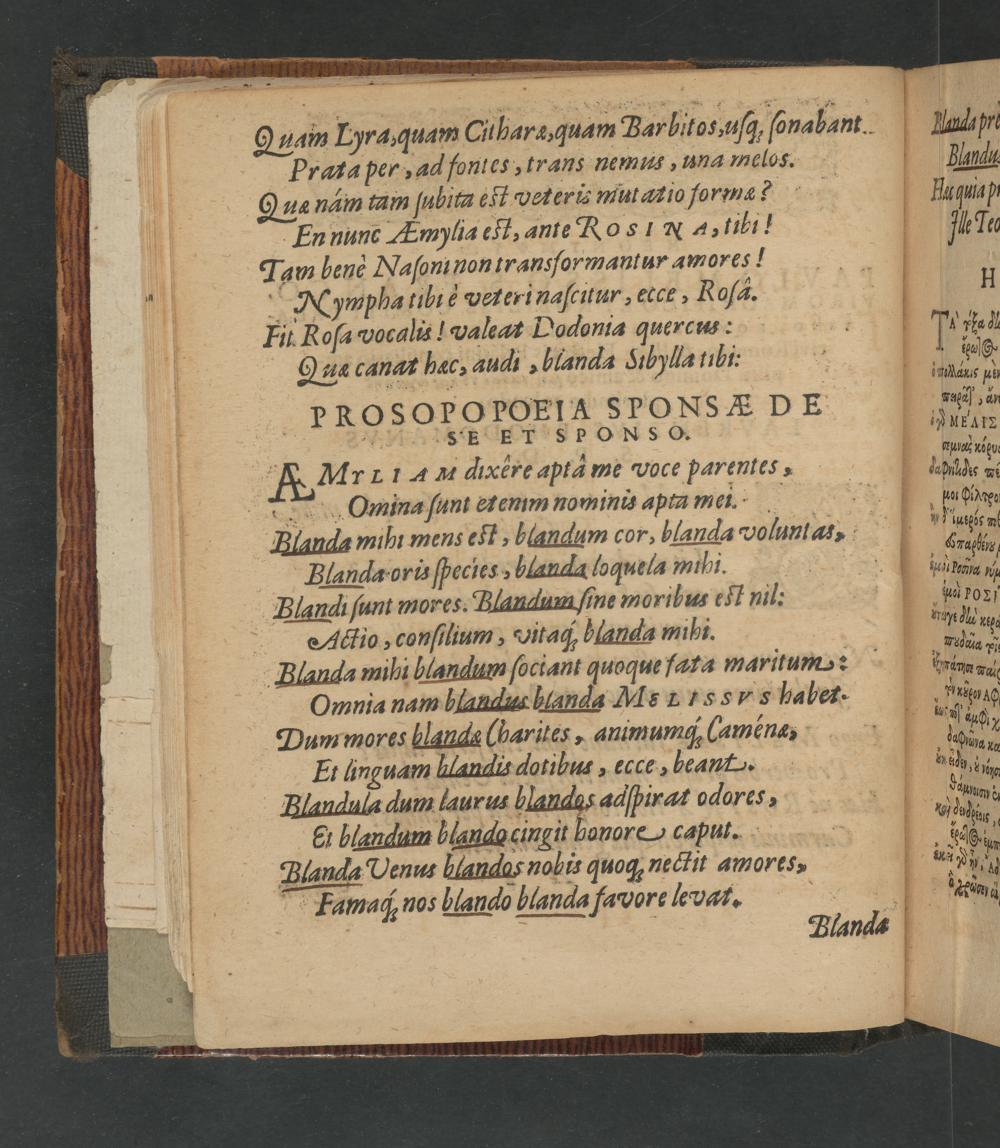 Quam Lyra, quam Citharæ, quam Barbitos, usq́; ſonabant
Prata per, ad fontes, trans nemus, una melos.
Quæ nám tam ſubita eſt veteris mutatio formæ?
En nunc Æmylia eſt, ante ROSINA, tibi!
Tam benè Naſoni non transformantur amores!
Nympha tibi è veteri naſcitur, ecce, Roſâ.
Fit Roſa vocalis! valeat Dodonia quercus:
Quæ canat hæc, audi, blanda Sibylla tibi:
PROSOPOPOEIA SPONSÆ DE
SE ET SPONSO.
ÆMYLIAM dixêre aptâ me voce parentes,
Omina ſunt etenim nominis apta mei.
Blanda mihi mens eſt, blandum cor, blanda voluntas,
Blanda oris ſpecies, blanda loquela mihi.
Blandi ſunt mores. Blandum ſine moribus eſt nil:
Actio, conſilium, vitaq́; blanda mihi.
Blanda mihi blandum ſociant quoque fata maritum:
Omnia nam blandus blanda MELISSVS habet.
Dum mores blandæ Charites, animumq́; Caménæ,
Et linguam blandis dotibus, ecce, beant.
Blandula dum laurus blandos adſpirat odores,
Et blandum blando cingit honore caput.
Blanda Venus blandos nobis quoq; nectit amores,
Famaq́; nos blando blanda favore levat.
Blandæ
Blanda
Blandus
Hæc quia
Ille
H
ΜΕΛΙΣ
ΡΟΣΙ